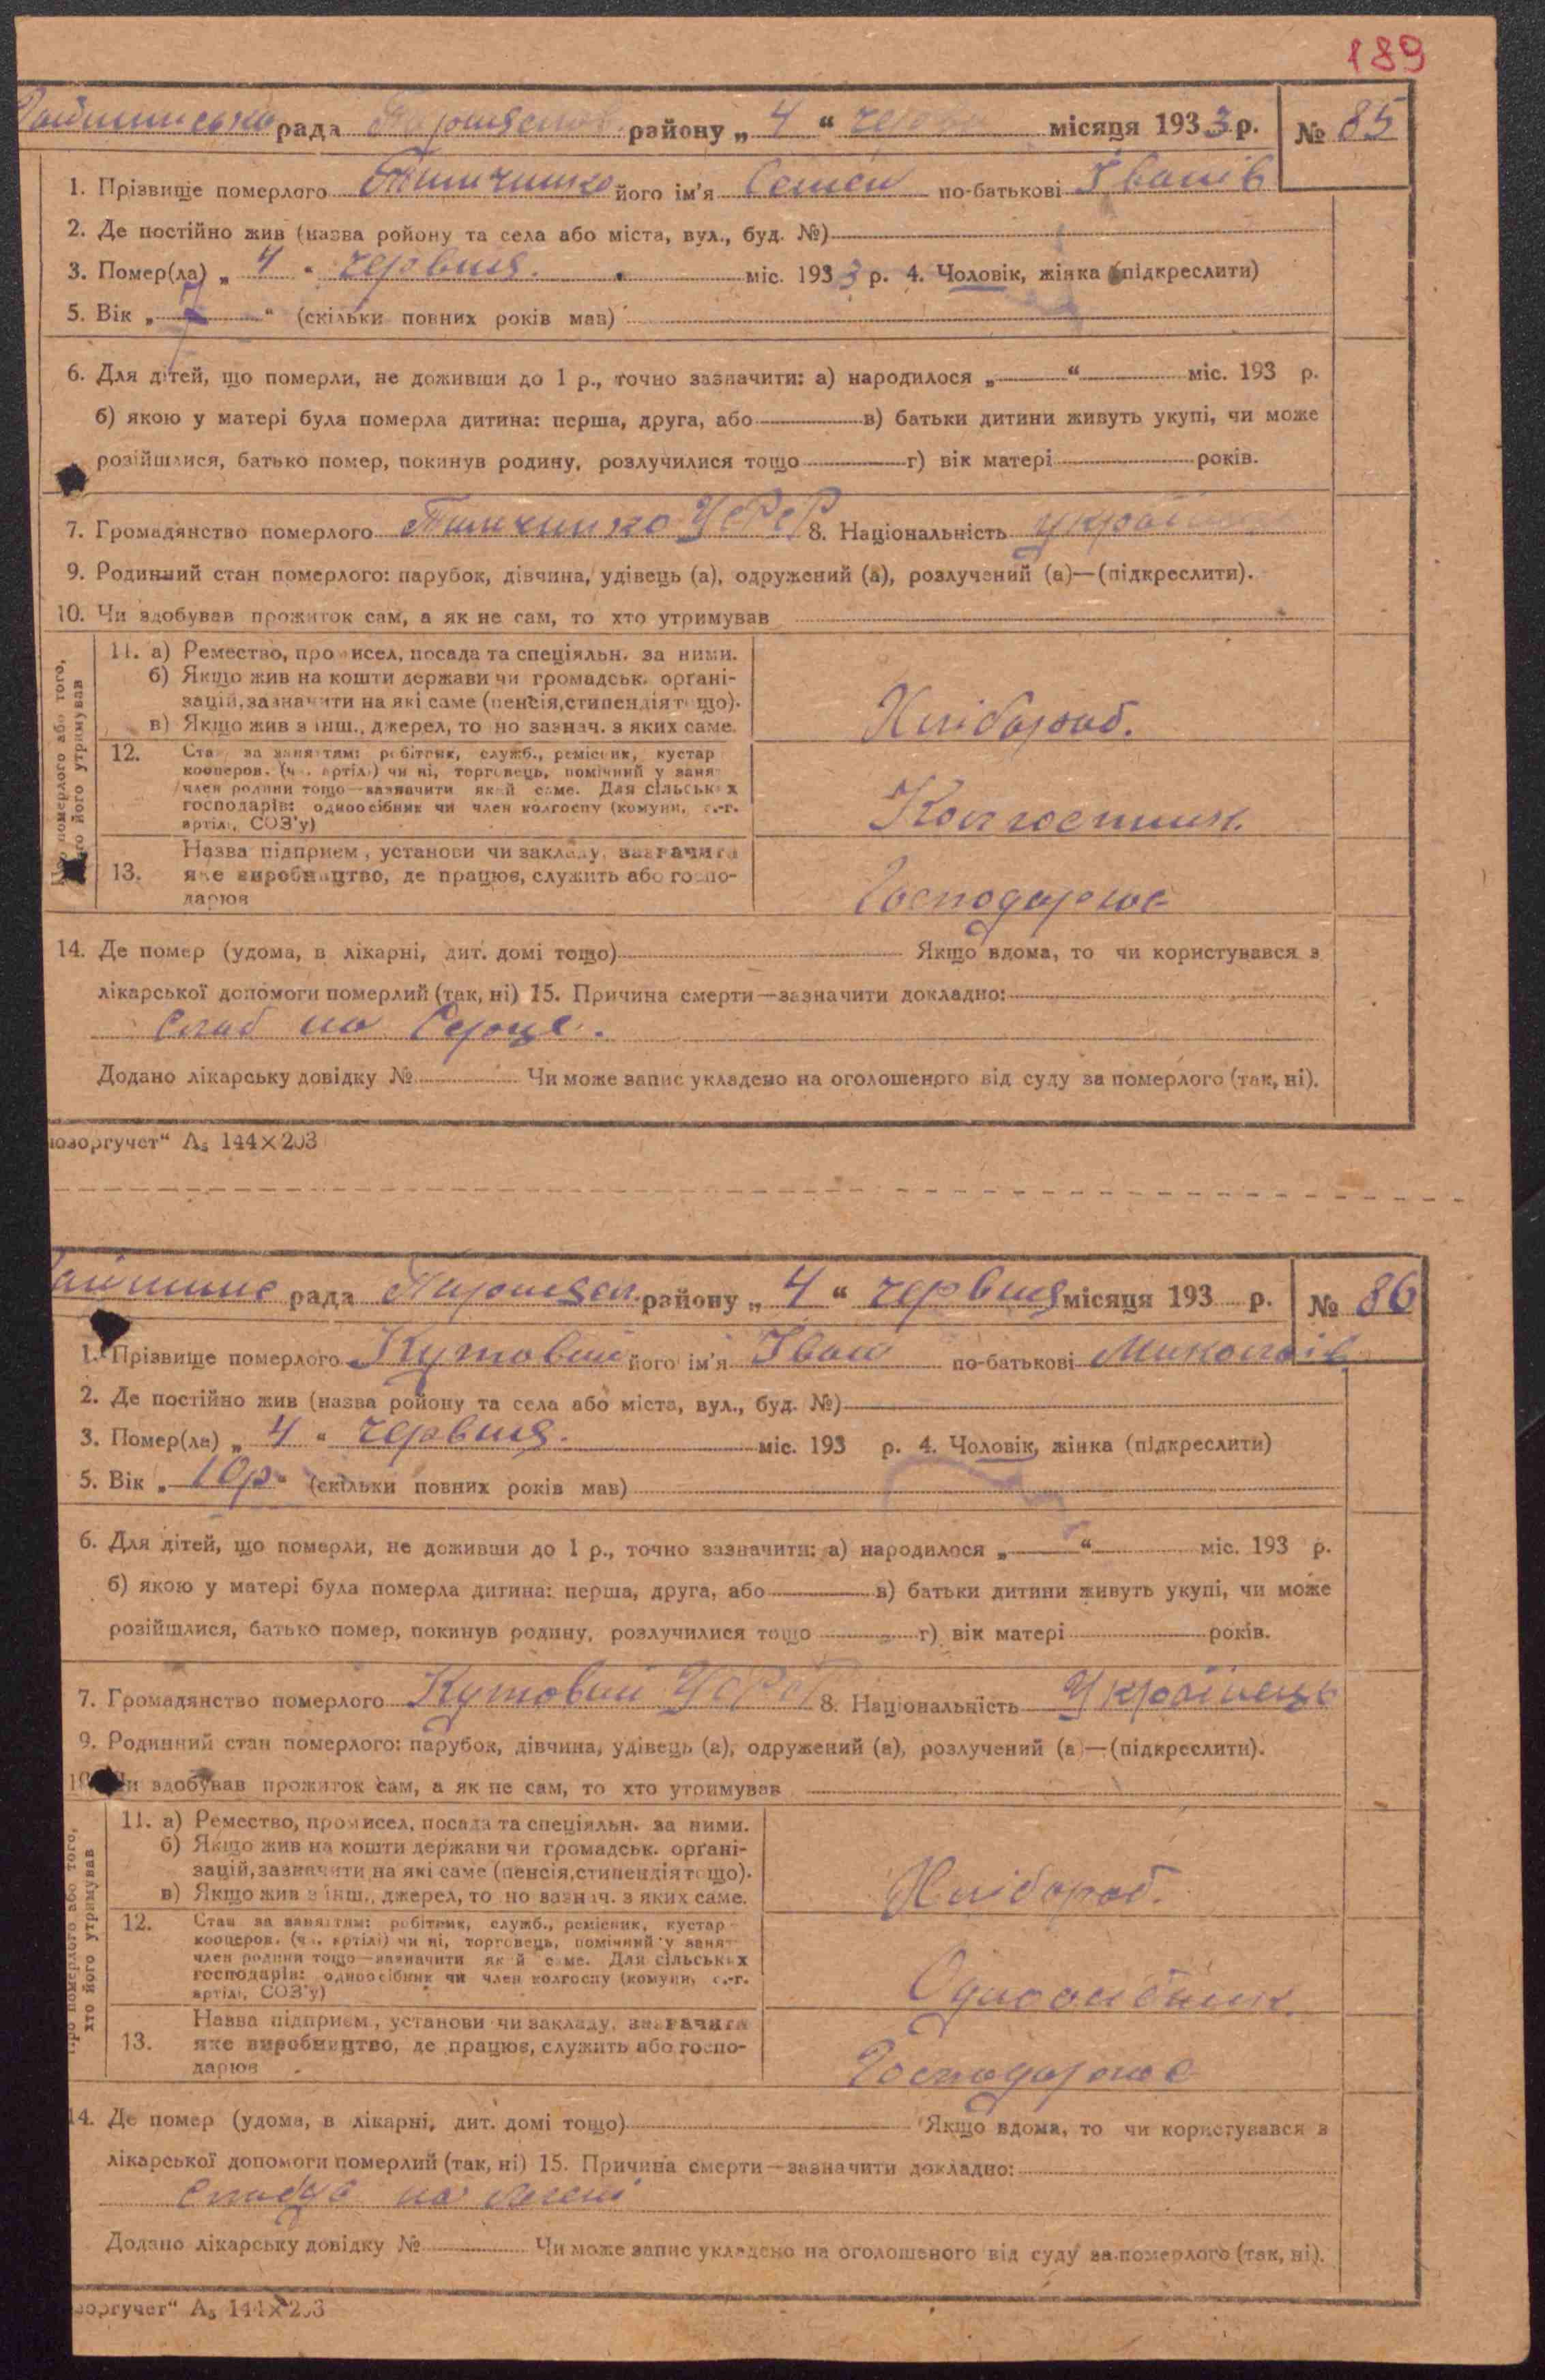 189
рада района „ 4 “ місяця 1933 р. № 85
1. Прізвище померлого його ім'я Семен по-батькові Іванів
2. Де постійно жив (назва ройону та села або міста, вул., буд. №)
3. Помер(ла) „ 4 “ червня. міс. 1933 р. 4. Чоловік, жінка (підкреслити)
5. Вік „ “ (скільки повних років мав)
6. Для дітей, що померли, не доживши до 1 р., точно зазначити: а) народилося „ “ міс. 193 р.
б) якою у матері була померла дитина: перша, друга, або в) батьки дитини живуть укупі, чи може
розійшлися, батько помер, покинув родину, розлучилися тощо г) вік матері років.
7. Громадянство померлого УСРР 8. Національність
9. Родинний стан померлого: парубок, дівчина, удівець (а), одружений (а), розлучений (а)—(підкреслити).
10. Чи здобував прожиток сам, а як не сам, то хто утримував
Про померлого або того, хто його утримував
11. а) Ремество, промисел, посада та спеціяльн. за ними.
б) Якщо жив на кошти держави чи громадськ. орґані-
зацій, зазначити на які саме (пенсія, стипендія тощо).
в) Якщо жив з інш., джерел, то но зазнач. з яких саме.
Хлібороб.
12. Стан за заняттям: робітник, служб., ремісник, кустар
кооперов. (чл. артілі) чи ні, торговець, помічний у заня-
член родини тощо—зазначити який саме. Для сільських
господарів: одноосібник чи член колгоспу (комуни, с.-г.
артілі, СОЗ'у)
Колгоспник.
13. Назва підприєм., установи чи закладу, зазначити
яке виробництво, де працює, служить або госпо-
дарює
Господарює
14. Де помер (удома, в лікарні, дит. домі тощо) Якщо вдома, то чи користувався з
лікарської допомоги померлий (так, ні) 15. Причина смерти—зазначити докладно:
Слаб на Серце.
Додано лікарську довідку № Чи може запис укладено на оголошеного від суду за померлого (так, ні).
юзоргучет“ А₅ 144×203
рада района „ 4 “ червня місяця 193 р. № 86
1. Прізвище померлого Кутовий його ім'я Іван по-батькові Миколаїв
2. Де постійно жив (назва ройону та села або міста, вул., буд. №)
3. Помер(ла) „ 4 “ червня. міс. 193 р. 4. Чоловік, жінка (підкреслити)
5. Вік „ 10р. “ (скільки повних років мав)
6. Для дітей, що померли, не доживши до 1 р., точно зазначити: а) народилося „ “ міс. 193 р.
б) якою у матері була померла дитина: перша, друга, або в) батьки дитини живуть укупі, чи може
розійшлися, батько помер, покинув родину, розлучилися тощо г) вік матері років.
7. Громадянство померлого Кутовий УСРР 8. Національність Українець
9. Родинний стан померлого: парубок, дівчина, удівець (а), одружений (а), розлучений (а)—(підкреслити).
10. Чи здобував прожиток сам, а як не сам, то хто утримував
Про померлого або того, хто його утримував
11. а) Ремество, промисел, посада та спеціяльн. за ними.
б) Якщо жив на кошти держави чи громадськ. орґані-
зацій, зазначити на які саме (пенсія, стипендія тощо).
в) Якщо жив з інш., джерел, то но зазнач. з яких саме.
Хлібороб.
12. Стан за заняттям: робітник, служб., ремісник, кустар
кооперов. (чл. артілі) чи ні, торговець, помічний у заня-
член родини тощо—зазначити який саме. Для сільських
господарів: одноосібник чи член колгоспу (комуни, с.-г.
артілі, СОЗ'у)
Одноосібник.
13. Назва підприєм., установи чи закладу, зазначити
яке виробництво, де працює, служить або госпо-
дарює
Господарює
14. Де помер (удома, в лікарні, дит. домі тощо) Якщо вдома, то чи користувався з
лікарської допомоги померлий (так, ні) 15. Причина смерти—зазначити докладно:
на
Додано лікарську довідку № Чи може запис укладено на оголошеного від суду за померлого (так, ні).
зоргучет“ А₅ 144×203